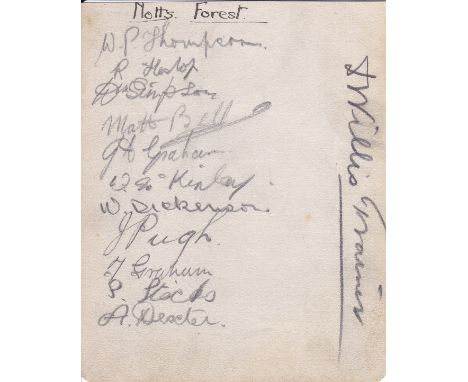 Notts. Forest.
W. P. Thompson.
R Heslop
Wm Simpson
Matt
G A Graham.
Kinley.
W. Dickenson.
J Pugh.
T Graham
S. Stocks
A. Dexter.
T Willis Trainer